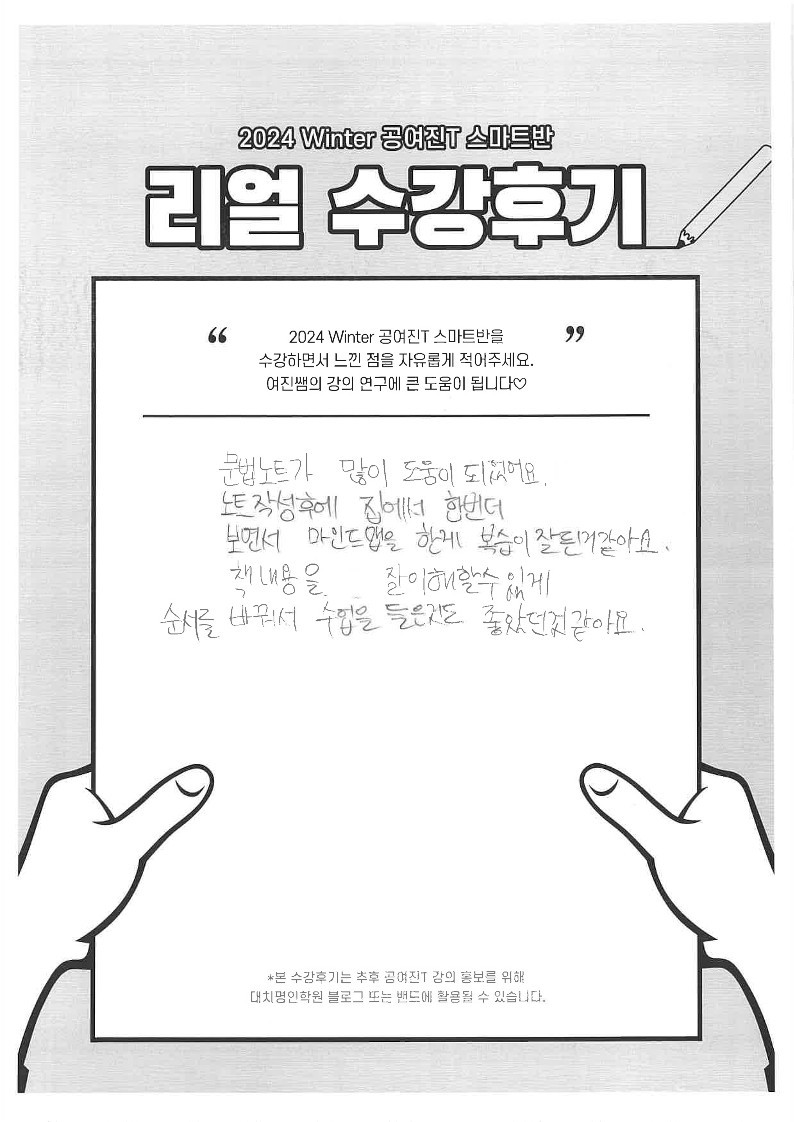 2024 Winter 공여진T 스마트반
리얼 수강후기
“ 2024 Winter 공여진T 스마트반을 ”
수강하면서 느낀 점을 자유롭게 적어주세요.
여진쌤의 강의 연구에 큰 도움이 됩니다♡
문법노트가 많이 도움이 되었어요.
노트작성후에 집에서 한번더
보면서 마인드맵을 한게 복습이 잘된거같아요.
책 내용을 잘이해할수 있게
순서를 바꿔서 수업을 들은것도 좋았던것같아요.
*본 수강후기는 추후 공여진T 강의 홍보를 위해
대치명인학원 블로그 또는 밴드에 활용될 수 있습니다.